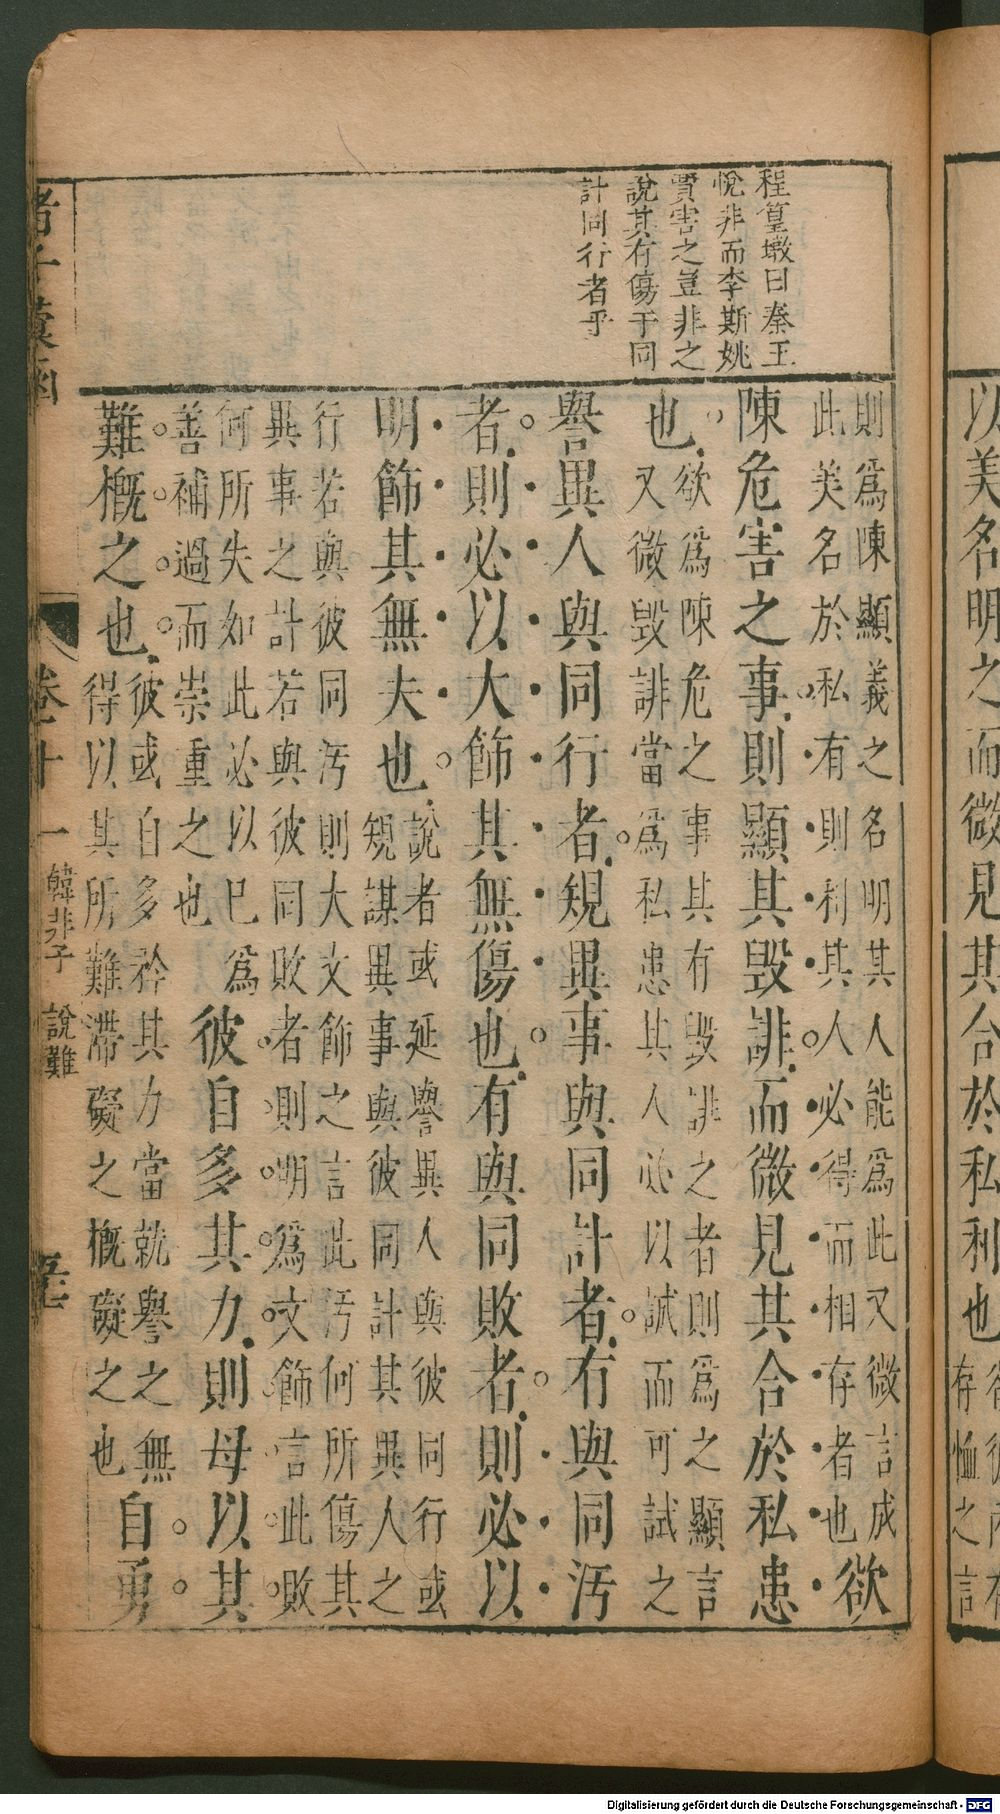 程篁墩曰秦王
悅非而李斯姚
賈害之豈非之
說其有傷于同
計同行者乎
則爲陳顯義之名明其人能爲此又微言成
此美名於私有則利其人必得而相存者也
欲
陳危害之事則顯其毀誹而微見其合於私患
也
欲爲陳危之事其有毀誹之者則爲之顯言
又微毀誹當爲私患其人必以誠而可試之
譽異人與同行者規異事與同計者有與同汚
者則必以大飾其無傷也有與同敗者則必以
明飾其無夫也
說者或延譽異人與彼同行或
規謀異事與彼同計其異人之
行若與彼同汚則大文飾之言此汚何所傷其
異事之計若與彼同敗者則明爲文飾言此敗
何所失如此必以巳爲
善補過而崇重之也
彼自多其力則母以其
難概之也
彼或自多矜其力當就譽之無
得以其所難滯礙之概礙之也
自勇
諸子彙函
卷十一
韓非子
說難
以美名明之而微見其合於私利也
存恤之言
Digitalisierung gefördert durch die Deutsche Forschungsgemeinschaft - DFG